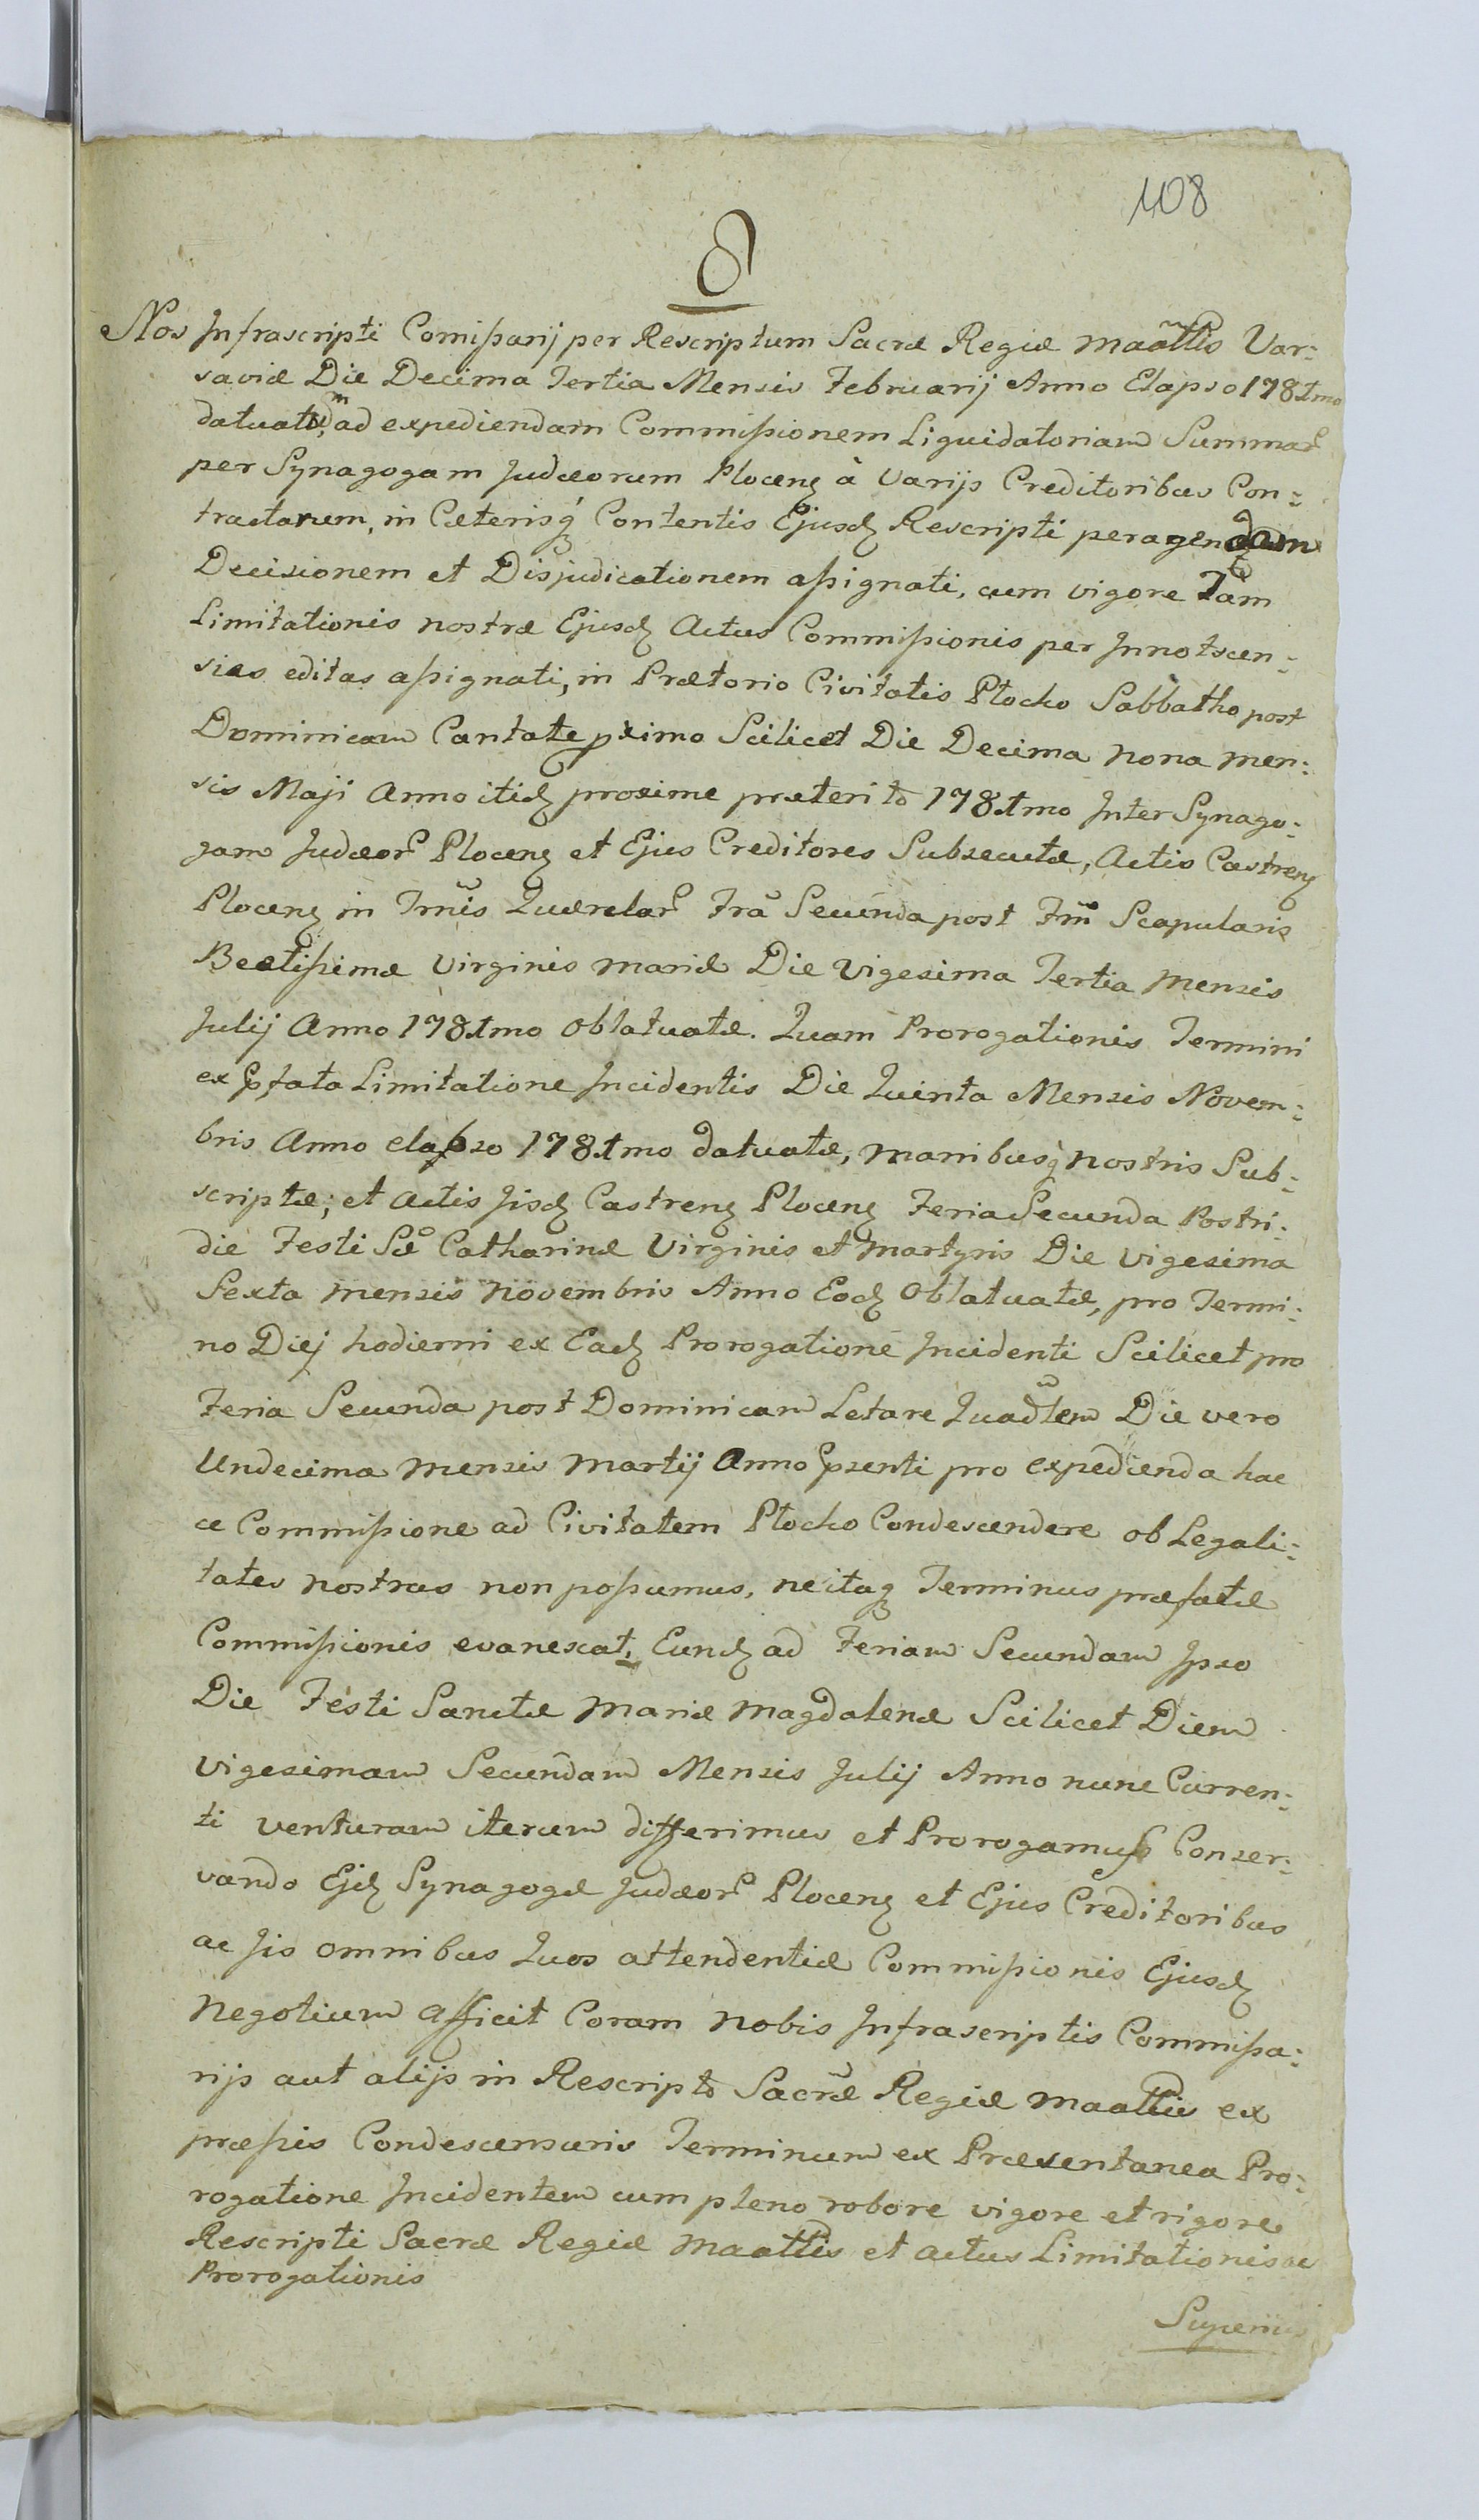 108
8
Nos Infrascripti Comißarij per Rescriptum Sacræ Regiæ Maattis Var:
saviæ Die Decima Tertia Mensis Februarij Anno Elapso 1781mo
datuatũm, ad expediendam Commißionem Liquidatoriam Summar
per Synagogam Judæorum Plocenȝ à Varijs Creditoribus Con:
tractarum, in Cæterisq́ Contentis Ejusdȝ Rescripti peragendam
Decisionem et Disjudicationem aßignati, cum vigore Tam
Limitationis nostræ Ejusdȝ Actus Commißionis per Innotscen:
sias editas aßignati, in Prætorio Civitatis Płocko Sabbatho post
Dominicam Cantate pximo Scilicet Die Decima Nona Men:
sis Maji Anno itidȝ proxime præterito 1781mo Inter Synago:
gam Judæor Plocenȝ et Ejus Creditores Subsecutæ, Actis Castrenȝ
Plocenȝ in Trm̃is Quærelar Fr̃a Secunda post Fm̃ Scapularis
Beatißimæ Virginis Mariæ Die Vigesima Tertia Mensis
Julij Anno 1781mo Oblatuatæ. Quam Prorogationis Termini
ex Pfata Limitatione Incidentis Die Quinta Mensis Novem:
bris Anno elapso 1781mo datuatæ, Manibusq́ nostris Sub:
scriptæ; et Actis Jisdȝ Castrenȝ Plocenȝ Feria Secunda Postri:
die Festi Sæ Catharinæ Virginis et Martyris Die Vigesima
Sexta Mensis Novembris Anno Eodȝ Oblatuatæ, pro Termi:
no Diej hodierni ex Eadȝ Prorogatione Incidenti Scilicet pro
Feria Secunda post Dominicam Letare Quadlem Die vero
Undecima Mensis Martij Anno Psenti pro expedienda hac
ce Commißione ad Civitatem Płocko Condescendere ob Legali:
tates nostras non poßumus, ne itaqȝ Terminus præfatæ
Commißionis evanescat, Eundȝ ad Feriam Secundam Ipso
Die Festi Sanctæ Mariæ Magdalenæ Scilicet Diem
Vigesimam Secundam Mensis Julij Anno nunc Curren:
ti venturam iterum differimus et Prorogamus Conser:
vando Ejdȝ Synagogæ Judæor Plocenȝ et Ejus Creditoribus
ac Jis omnibus Quos attendentiæ Commißionis Ejusdȝ
Negotium afficit Coram Nobis Infrascriptis Commißa:
rijs aut alijs in Rescripto Sacræ Regiæ Maattis ex
præßis Condescensuris Terminum ex Præsentanea Pro:
rogatione Incidentem cum pleno robore vigore et rigore
Rescripti Sacræ Regiæ Maattis et actus Limitationis ac
Prorogationis
Superius